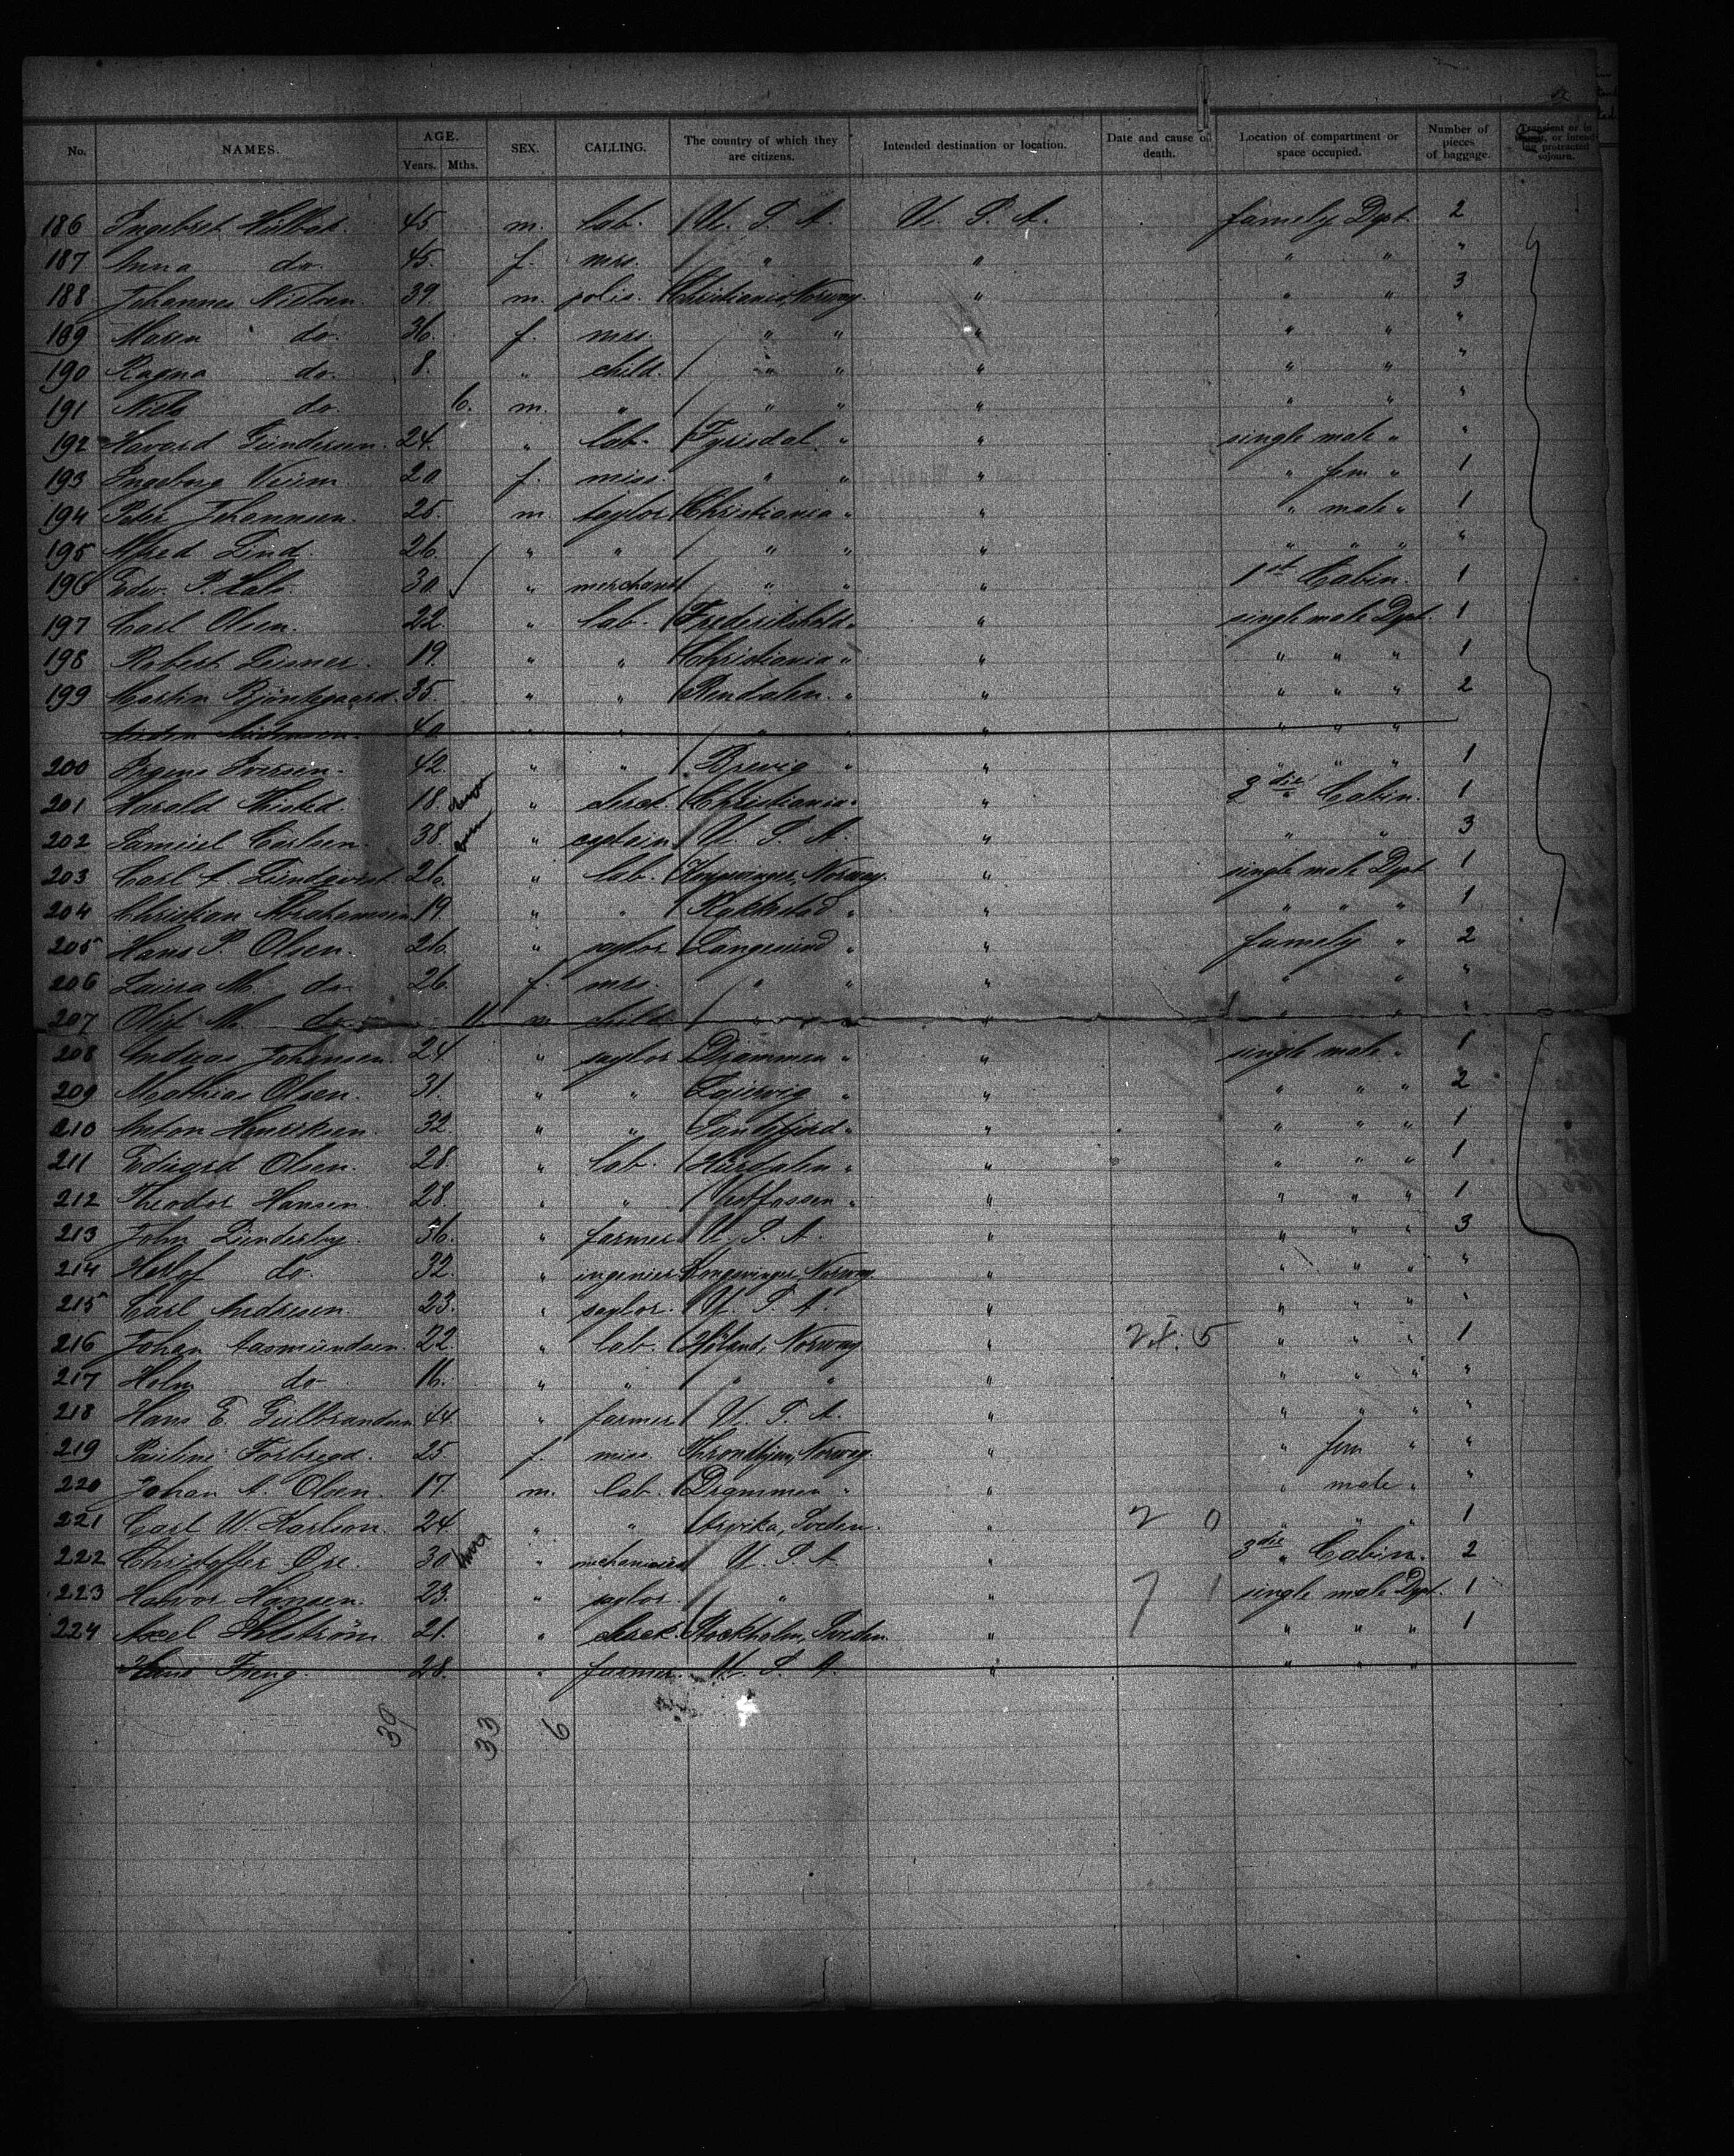 No. NAMES. AGE. Years. Mths. SEX. CALLING. The country of which they are citizens. Intended destination or location. Date and cause of death. Location of compartment or space occupied. Number of pieces of baggage. Transient or in transit, or intending protracted sojourn.
186 Ingebret 45. m. lab. U. S. A. U. S. A. famely Dept. 2
187 Anna do. 45. f. mrs. " " " " "
188 Johannes Nielsen. 39. m. polis. Christiania, Norway. " " " 3
189 Maren do. 36. f. mrs. " " " " " "
190 Ragna do. 8. " child. " " " " " "
191 Niels do. 6. m. " " " " " " "
192 Havard Gundersen. 24. " lab. Fyrisdal " " single male " "
193 Ingeborg Veum 20 f. miss. " " " " fem " 1
194 Peter Johannsen. 25. m. taylor Christiania " " " male " 1
195 Alfred Lind. 26. " " " " " " " " "
196 Edw. P. 30. " merchant " " " 1st Cabin. 1
197 Carl Olsen. 22. " lab. Frederikshald " " single male Dept. 1
198 Robert 19. " " Christiania " " " " " 1
199 Martin Bjöntegaard. 35. " " Rendalen. " " " " " 2
40 " " " " " " " "
200 Iversen. 42. " " Brevig " " " " " 1
201 Harald Thisted 18. " clerk. Christiania " " 3die Cabin. 1
202 Samuel Carlsen. 38. " captain U. S. A. " " " 3
203 Carl A. Lundqvist. 26. " lab. Kongsvinger, Norway. " single male Dept 1
204 Christian Abrahamsen 19. " " Rakkestad " " " " " 1
205 Hans P. Olsen. 26. " saylor Langesund " " famely " 2
206 Laura M. do 26. f. mrs. " " " " " "
207 Olaf M. do 11 m child " " " " " "
208 Andreas Johansen. 24 " saylor Drammen " " single male " 1
209 Mathias Olsen. 31. " " Laurvig " " " " " 2
210 Anton Henriksen. 32. " " Sandefjord " " " " " 1
211 Eduard Olsen. 28. " lab. Hurdalen " " " " " 1
212 Theodor Hansen 28. " " Vestfossen " " " " " 1
213 John Lunderby. 36. " farmer U. S. A. " " " " 3
214 Herlof do. 32. " ingenier Kongsvinger, Norway. " " " " "
215 Carl Andresen 23. " saylor. U. S. A. " " " " "
216 Johan Aasmundsen. 22. " lab. Höland, Norway " " " " 1
217 Holm do 16. " " " " " " " " "
218 Hans E. Gulbrandsen 44. " farmer U. S. A. " " " " "
219 Pauline Forbregd. 25. f. miss. Throndhjem, Norway. " " fem " "
220 Johan A. Olsen. 17. m. lab. Drammen " " " male " "
221 Carl W. Karlson. 24. " " Arvika, Sveden. " 2 0 " " " 1
222 Christoffer Öre. 30 " U. S. A. " 3die Cabin. 2
223 Halvor Hansen. 23. " saylor. " " 7 1 single male Dept. 1
224 Axel Ahlström. 21. " clerk. Stockholm, Sveden. " " " " 1
Hans Freng. 28. " farmer. U. S. A. " " " "
39 33 6